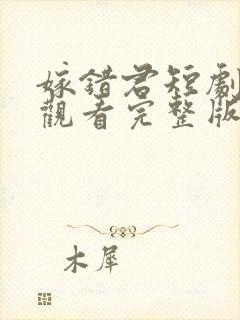 嫁錯君短劇
觀看完整版
木犀